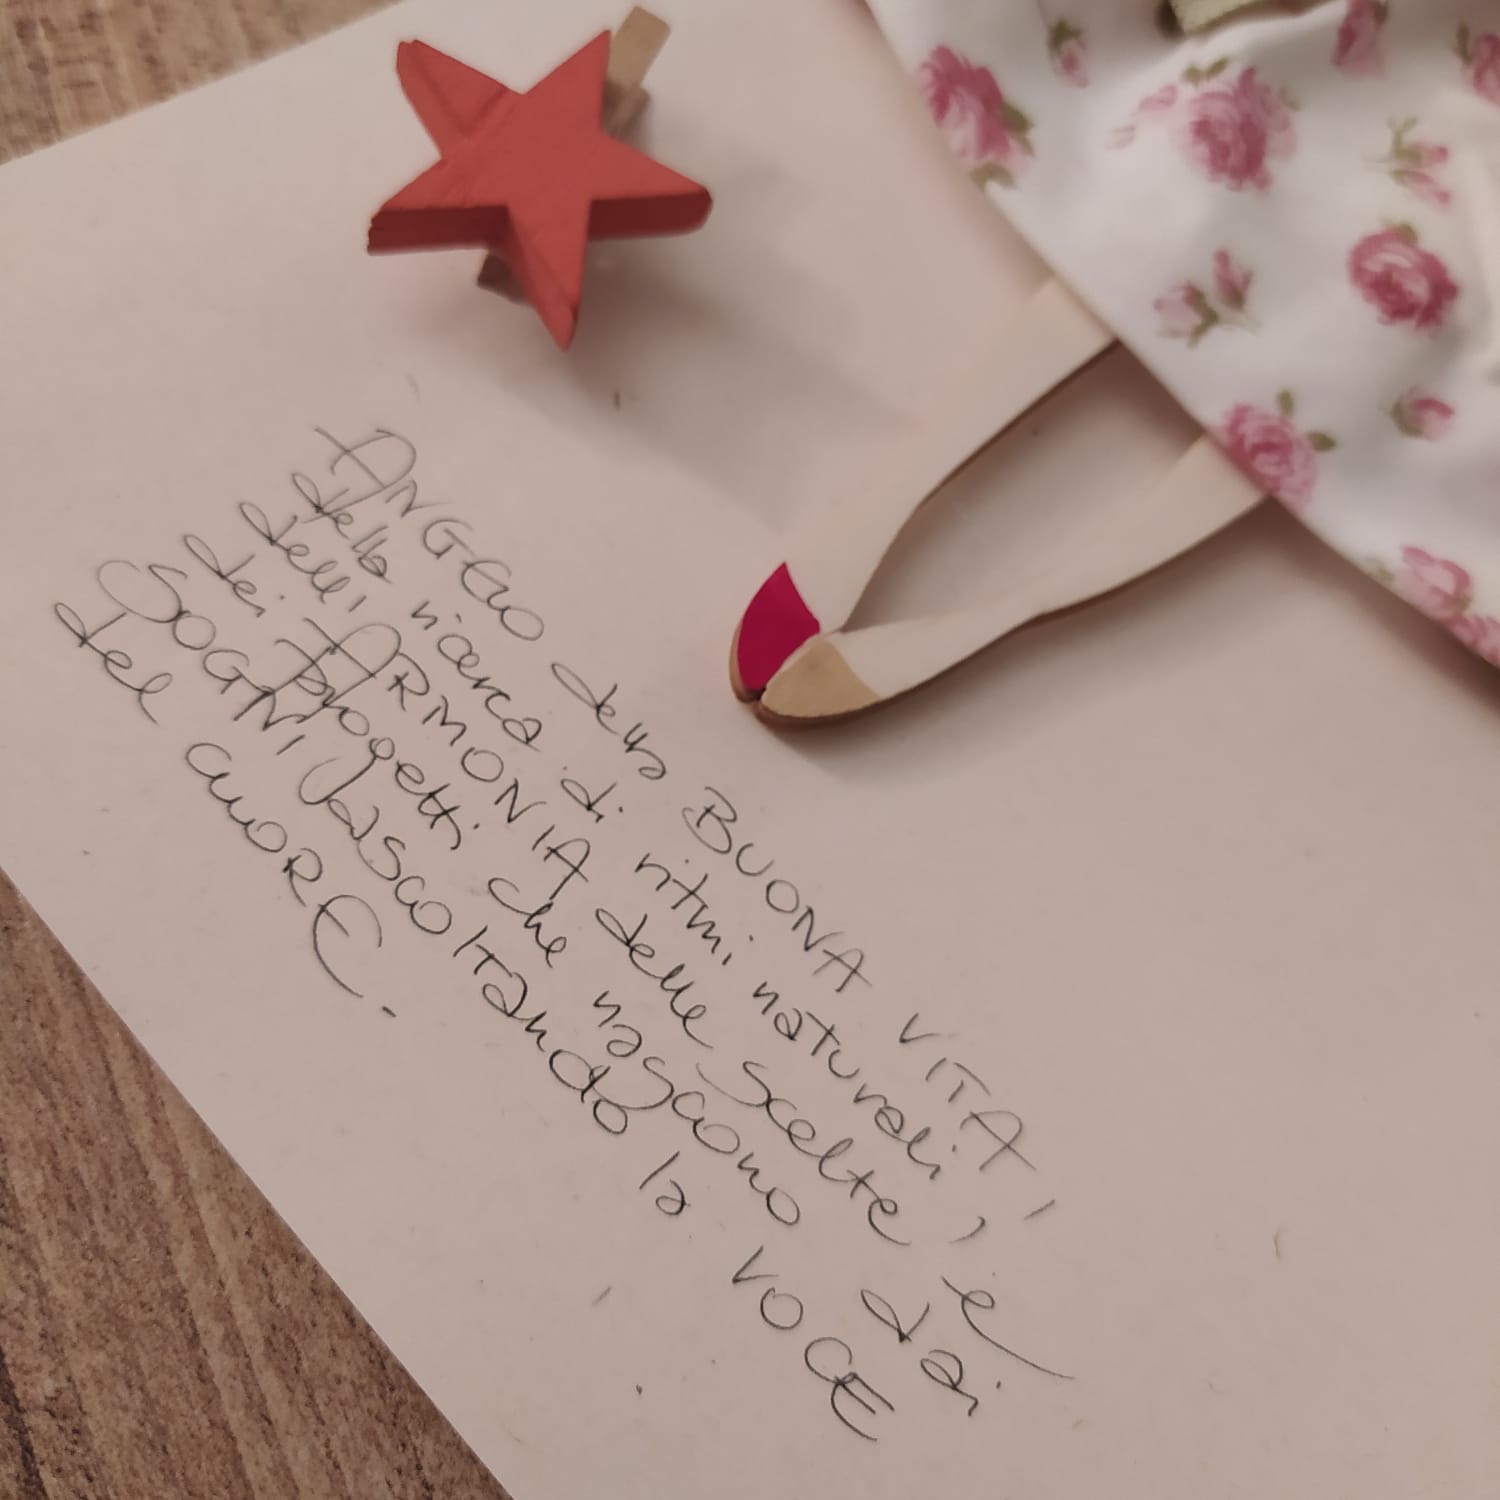 ANGELO della BUONA VITA,
della ricerca di ritmi naturali,
dell'ARMONIA delle scelte, e
dei progetti che nascono dai
SOGNI, ascoltando la VOCE
del cuORE.